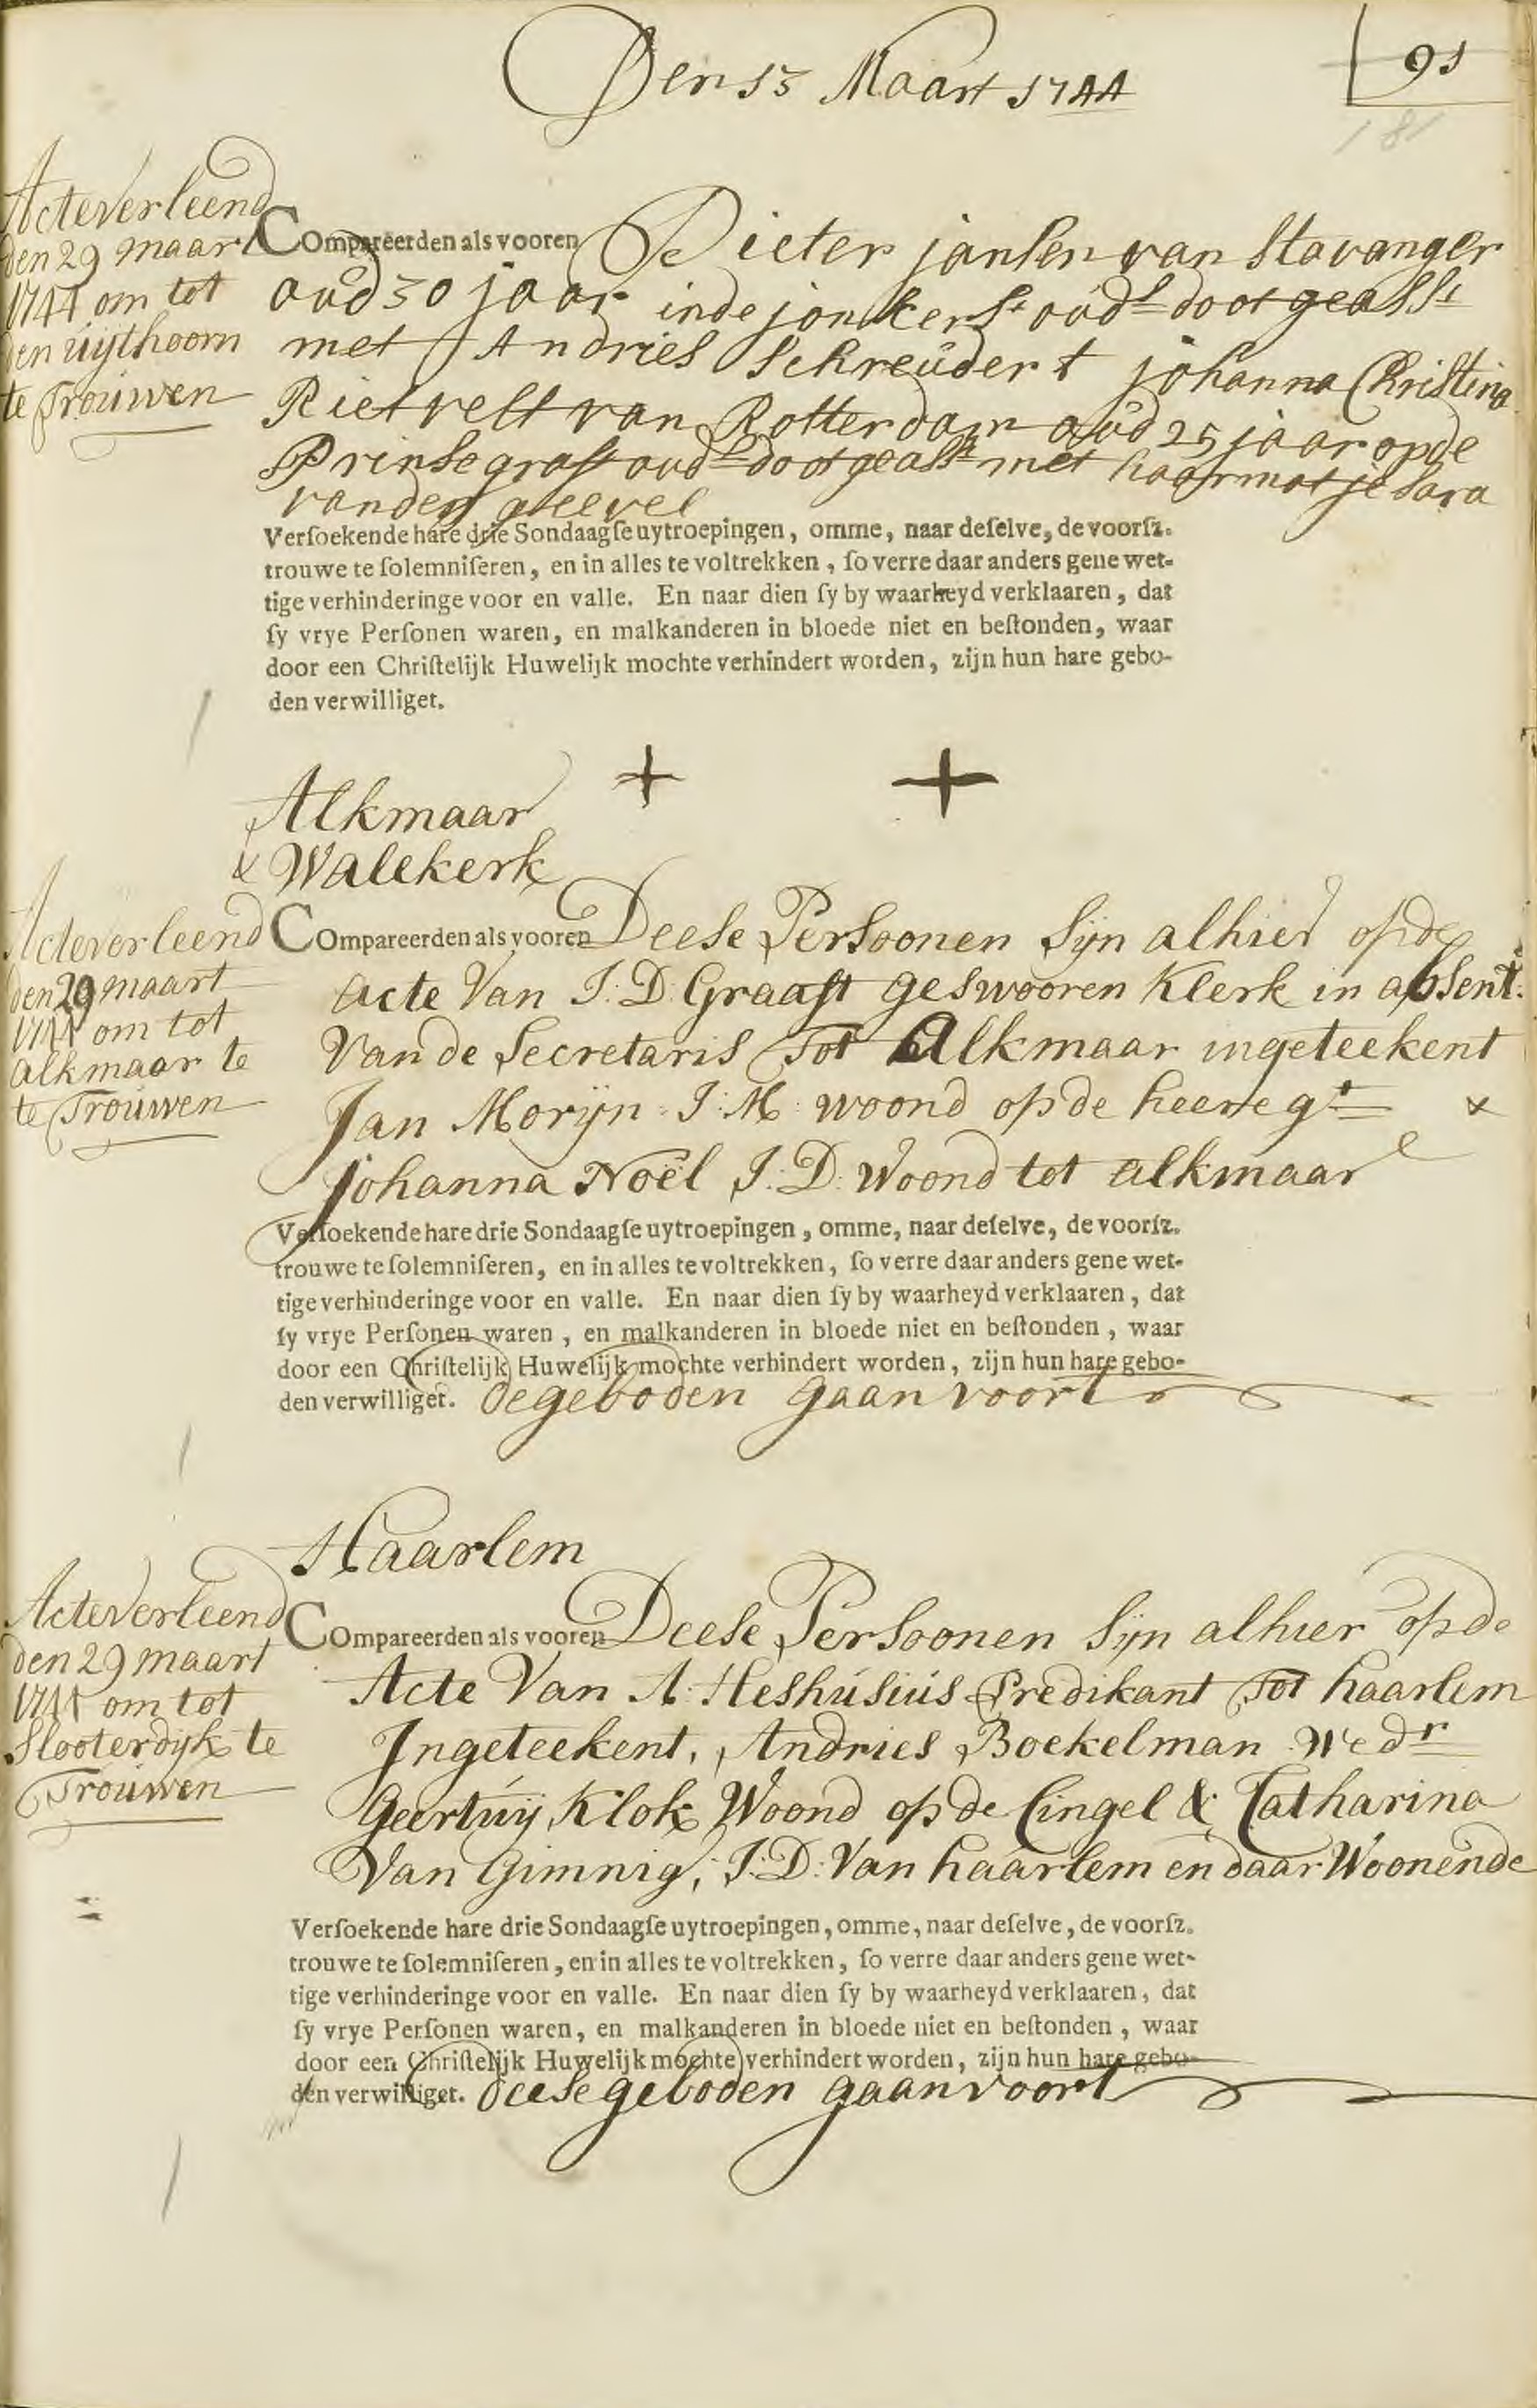 Den 13 Maart 1744
91
181
Acte verleend
den 29 maart
1744 om tot
den uijthoorn
te Trouwen
Compareerden als vooren Pieter jansen van Stavanger
oud 30 jaar inde jonkerst ouds doot geasst
met Andries Schreuder & johanna Christina
Rietvelt van Rotterdam oud 25 jaar opde
Prinsegraft ouds doot geasst met haar motje Sara
vanden
Verſoekende hare drie Sondaagſe uytroepingen, omme, naar deſelve, de voorſz.
trouwe te ſolemniſeren, en in alles te voltrekken, ſo verre daar anders gene wet-
tige verhinderinge voor en valle. En naar dien ſy by waarheyd verklaaren, dat
ſy vrye Perſonen waren, en malkanderen in bloede niet en beſtonden, waar
door een Chriſtelijk Huwelijk mochte verhindert worden, zijn hun hare gebo-
den verwilliget.
+ +
Alkmaar
& Walekerk
Acte verleend
den 29 maart
1744 om tot
alkmaar te
te Trouwen
Compareerden als vooren Deese Persoonen Sijn alhier opde
acte Van J: D: Graaft geswooren Klerk in absent:
Van de Secretaris Tot Alkmaar ingeteekent
Jan Morijn J: M: woond op de heere gt &
Johanna Noël J: D: Woond tot alkmaar
Verſoekende hare drie Sondaagſe uytroepingen, omme, naar deſelve, de voorſz.
trouwe te ſolemniſeren, en in alles te voltrekken, ſo verre daar anders gene wet-
tige verhinderinge voor en valle. En naar dien ſy by waarheyd verklaaren, dat
ſy vrye Perſonen waren, en malkanderen in bloede niet en beſtonden, waar
door een Chriſtelijk Huwelijk mochte verhindert worden, zijn hun hare gebo-
den verwilliget. de geboden gaan voort
Haarlem
Acte verleend
den 29 maart
1744 om tot
Slooterdijk te
Trouwen
Compareerden als vooren Deese Persoonen Sijn alhier op de
Acte Van A: Heshusius Predikant Tot haarlem
Ingeteekent, Andries Boekelman Wedr
Geertuij Klok Woond op de Cingel & Catharina
Van Gimnig, J: D: Van haarlem en daar Woonende
Verſoekende hare drie Sondaagſe uytroepingen, omme, naar deſelve, de voorſz.
trouwe te ſolemniſeren, en in alles te voltrekken, ſo verre daar anders gene wet-
tige verhinderinge voor en valle. En naar dien ſy by waarheyd verklaaren, dat
ſy vrye Perſonen waren, en malkanderen in bloede niet en beſtonden, waar
door een Chriſtelijk Huwelijk mochte verhindert worden, zijn hun hare gebo-
den verwilliget. deese geboden gaan voort